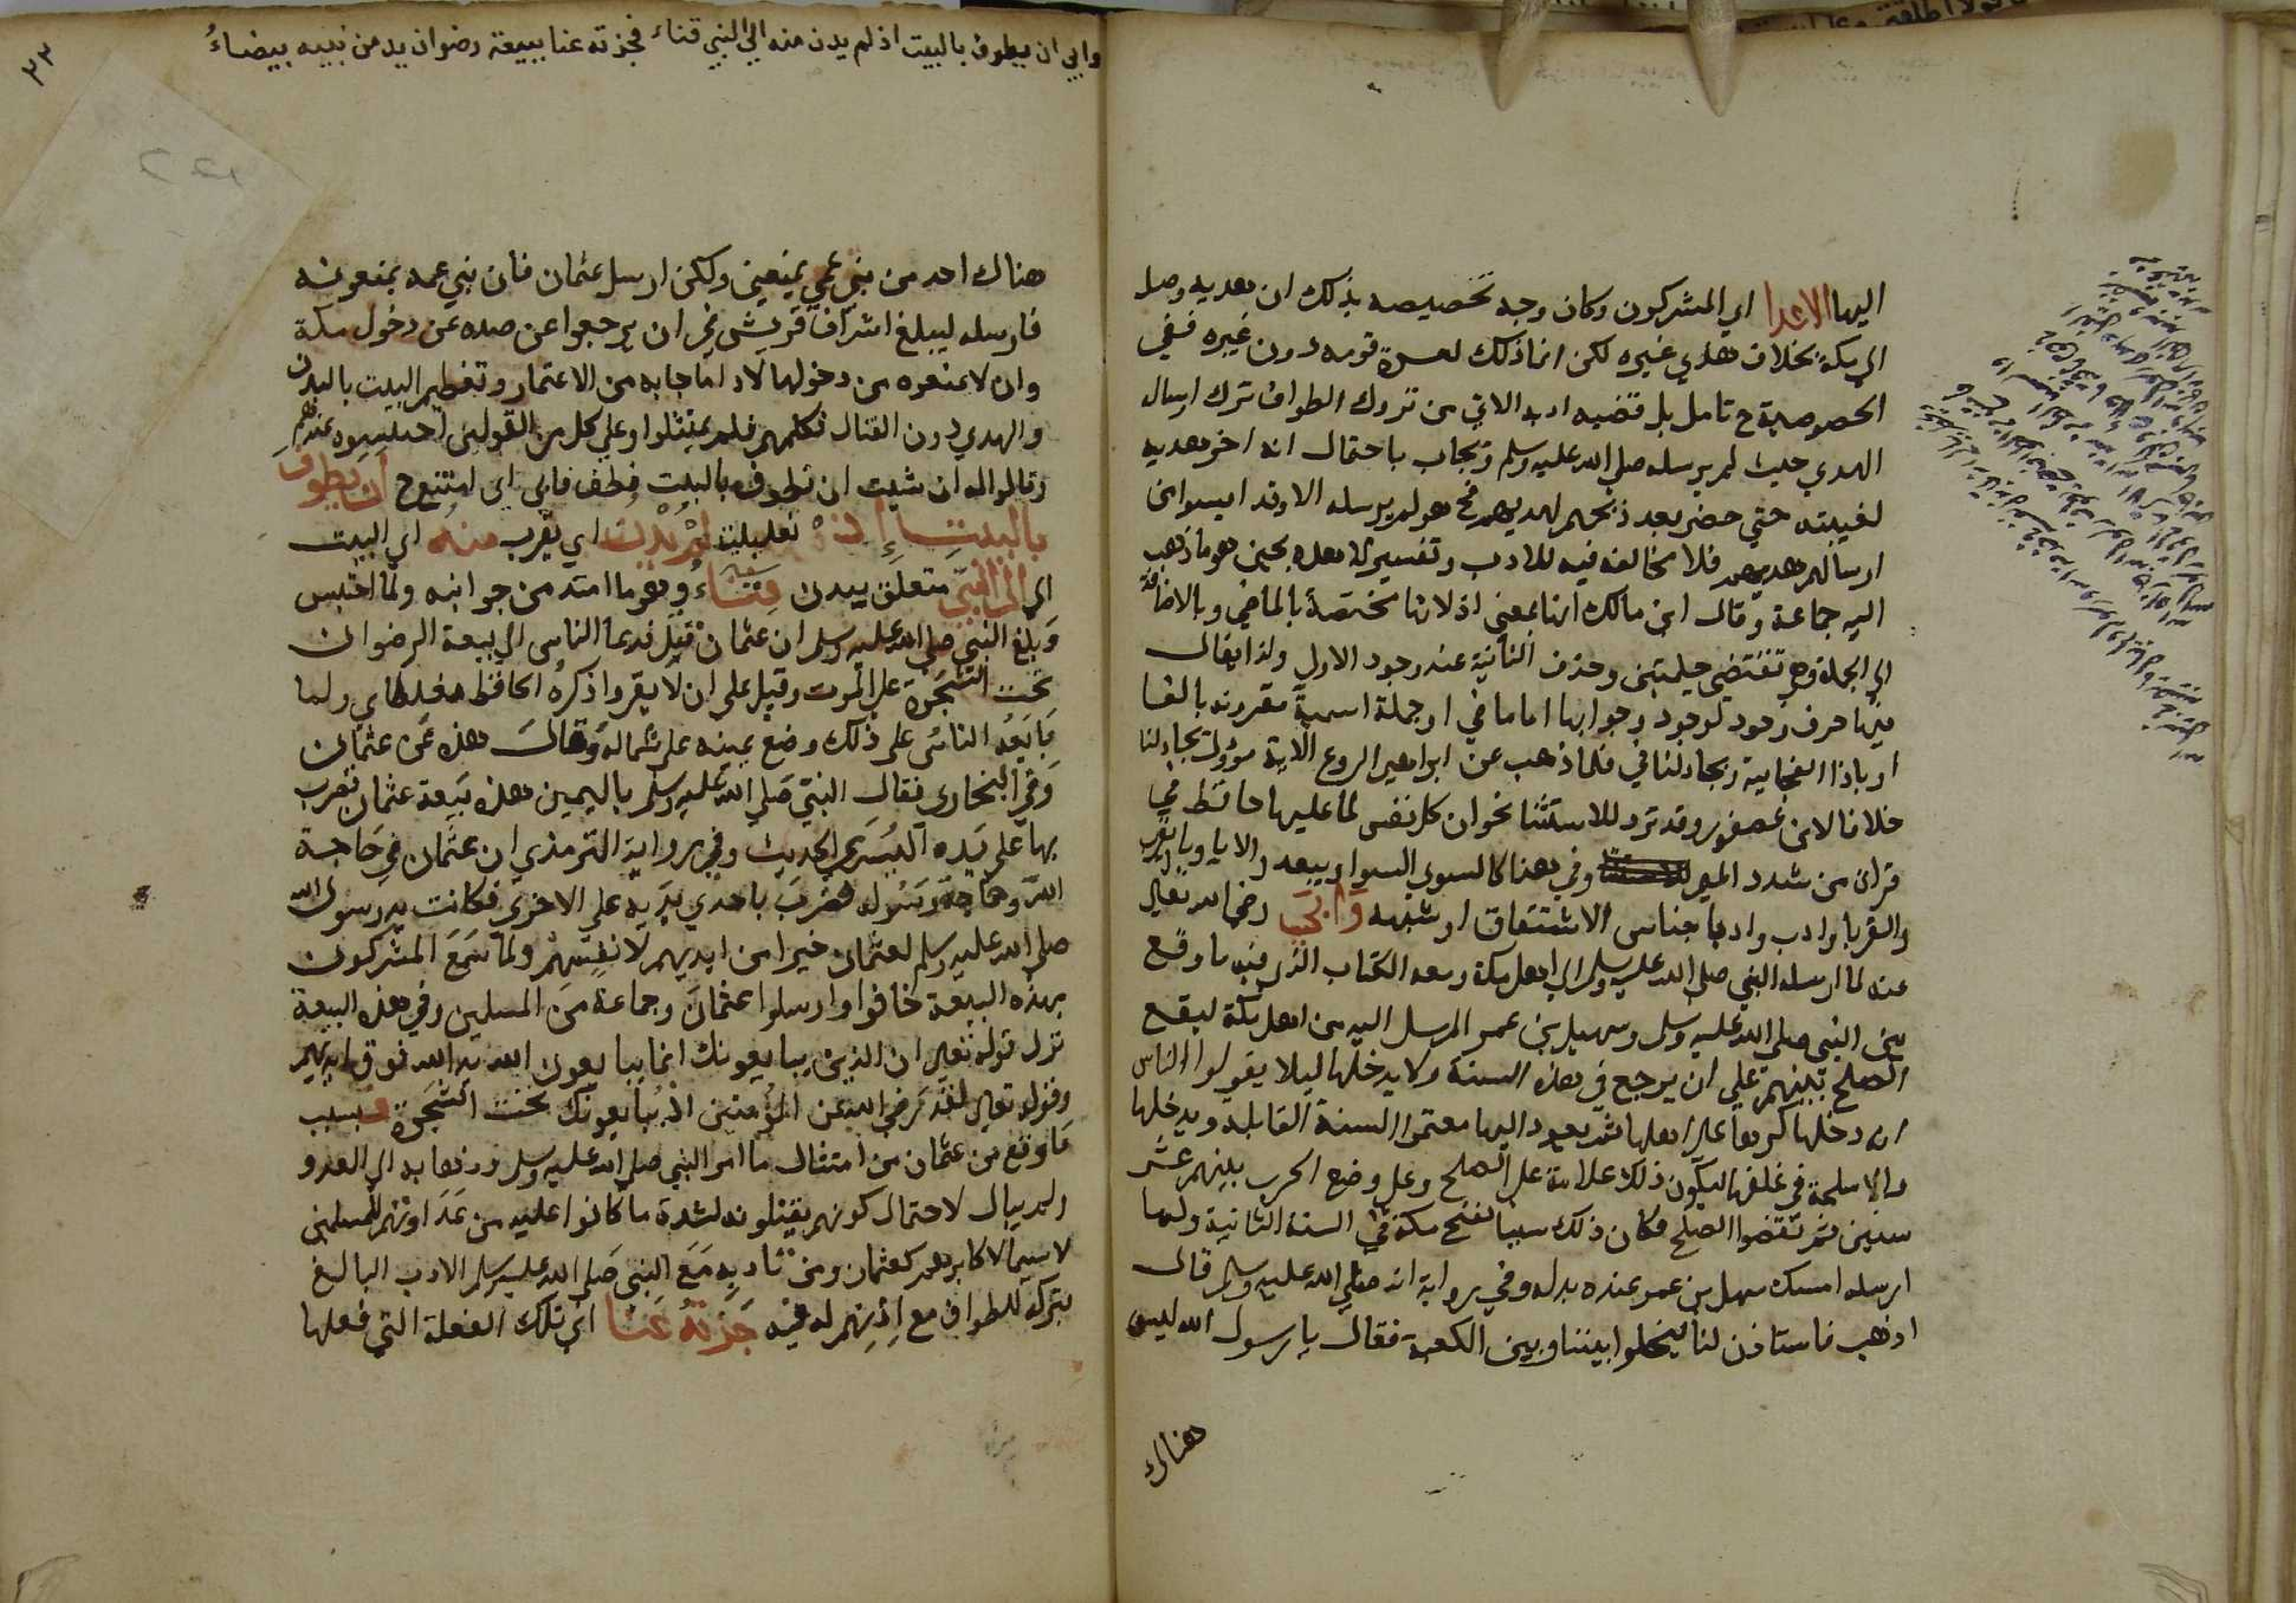 اليها الاعدا اي المشركون وكان وجه تخصيصه بذلك ان هديه وصل
الى مكة بخلاف هدي غيره لكن انما ذلك لعسرة قومه دون غيره ففي
الخصوصية ح تامل بل قضيه ادبه الاتي من تروك الطواف ترك ارسال
الهدي حيث لم يرسله صلى الله عليه وسلم وتجاب باحتمال انه اخر هديه
لغيبته حتي حضر بعد ذبحهم لهديهم فح هو لم يرسله الا وقد ايسوا من
ارسالهم هديهم فلا مخالفة فيه للادب وتفسير لما هذه بحين هو ما ذهب
اليه جماعة وقال ابن مالك انها بمعني اذ لانها مختصة بالماضي وبالاضافة
الى الجملة وهي تقتضي جملتين وجدت الثانية عند وجود الاولى ولذا يقال
فيها حرف وجود لوجود وجوابها اما ماضي او جملة اسمية مقرونه بالفا
او باذا الفجاية ويجادلنا في فلما ذهب عن ابراهيم الروع الاية مؤول بجادلنا
خلافا لابن عصفور وقد ترد للاستثنا نحو ان كل نفس لما عليها حافظ في
قراة من شدد الميم وفي هنا كالسوي السوا و يبعد والايا وبا
والقربا وادب وادبا جناس الاشتقاق او شبهه وابي رضي الله تعالى
عنه لما ارسله النبي صلى الله عليه وسلم الى اهل مكة ومعه الكتاب الذي فيه ما وقع
بين النبي صلى الله عليه وسلم وسهيل بن عمر المرسل اليه من اهل مكة ليقع
الصلح بينهم على ان يرجع في هذه السنة ولا يدخلها ليلا يقولوا الناس
انه دخلها كرها على اهلها ثم يعود اليها معتمرا السنة القابلة ويدخلها
والاسلحة في غلفها ليكون ذلك علامة على الصلح وعلى وضع الحرب بينهم عشر
سنين ثم نقضوا الصلح فكان ذلك سببا لفتح مكة في السنة الثانية ولما
ارسله امسك سهل بن عمر عنده بدله وفي رواية انه صلى الله عليه وسلم قال
اذهب فاستاذن لنا ليخلوا بيننا وبين الكعبة فقال يا رسول الله ليس
هناك
وابي ان يطوف بالبيت اذ لم يدن منه الى النبي فناء فجزته عنا ببيعة رضوان يد من نبيه بيضاء
٣٣
هناك احد من بني عمي يمنعني ولكن ارسل عثمان فان بني عمه يمنعونه
فارسله ليبلغ اشراف قريش في ان يرجعوا عن صده عن دخول مكة
وان لا يمنعوه من دخولها لاداء ما جا به من الاعتمار وتعظيم البيت بالبدن
والهدي دون القتال فكلمهم فلم يمتثلوا وعلى كل من القولين احتبسوه عندهم
وقالوا له ان شيت ان تطوف بالبيت فطف فابى اي امتنع ح ان يطوف
بالبيت اذ تعليلية لم يدن اي يقرب منه اي البيت
الى النبي متعلق بيدن فناء وهو ما امتد من جوانبه ولما احتبس
وبلغ النبي صلى الله عليه وسلم ان عثمان قتل فدعا الناس الى بيعة الرضوان
تحت الشجرة على الموت وقيل على ان لا يفروا ذكره الحافظ مغلطاي ولما
بايعه الناس على ذلك وضع يمينه على شماله وقال هذه عن عثمان
وفي البخاري فقال النبي صلى الله عليه وسلم باليمين هذه بيعة عثمان فضرب
بها على يده اليسرى الحديث وفي رواية الترمذي ان عثمان في حاجة
الله وحاجة رسوله فضرب باحدي يديه على الاخرى فكانت يد رسول الله
صلى الله عليه وسلم لعثمان خيرا من ايديهم لانفسهم ولما سمع المشركون
بهذه البيعة خافوا وارسلوا عثمان وجماعة من المسلمين وفي هذه البيعة
نزل قوله تعالى ان الذين يبايعونك انما يبايعون الله يد الله فوق ايديهم
وقوله تعالى لقد رضي الله عن المؤمنين اذ يبايعونك تحت الشجرة فبسبب
ما وقع من عثمان من امتثال ما امر النبي صلى الله عليه وسلم وذهابه الى العدو
ولم يبال لاحتمال كونهم يقتلونه لشدة ما كانوا عليه من عداوتهم للمسلمين
لا سيما لاكابرهم كعثمان ومن تادبه مع النبي صلى الله عليه وسلم الادب البالغ
بتركه للطواف مع اذنهم له فيه جزته عنا اي تلك الفعلة التي فعلها